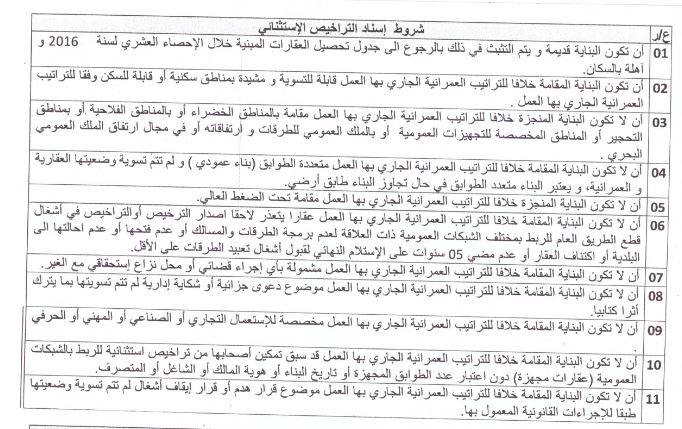 ع/ر شروط إسناد التراخيص الإستثنائي
01 أن تكون البناية قديمة و يتم التثبت في ذلك بالرجوع الى جدول تحصيل العقارات المبنية خلال الإحصاء العشري لسنة 2016 و
آهلة بالسكان.
02 أن تكون البناية المقامة خلافا للتراتيب العمرانية الجاري بها العمل قابلة للتسوية و مشيدة بمناطق سكنية أو قابلة للسكن وفقا للتراتيب
العمرانية الجاري بها العمل .
03 أن لا تكون البناية المنجزة خلافا للتراتيب العمرانية الجاري بها العمل مقامة بالمناطق الخضراء أو بالمناطق الفلاحية أو بمناطق
التحجير أو المناطق المخصصة للتجهيزات العمومية أو بالملك العمومي للطرقات و ارتفاقاته أو في مجال ارتفاق الملك العمومي
البحري .
04 أن لا تكون البناية المقامة خلافا للتراتيب العمرانية الجاري بها العمل متعددة الطوابق (بناء عمودي ) و لم تتم تسوية وضعيتها العقارية
و العمرانية، و يعتبر البناء متعدد الطوابق في حال تجاوز البناء طابق أرضي.
05 أن لا تكون البناية المنجزة خلافا للتراتيب العمرانية الجاري بها العمل مقامة تحت الضغط العالي.
06 أن لا تكون البناية المقامة خلافا للتراتيب العمرانية الجاري بها العمل عقارا يتعذر لاحقا اصدار الترخيص أوالتراخيص في أشغال
قطع الطريق العام للربط بمختلف الشبكات العمومية ذات العلاقة لعدم برمجة الطرقات والمسالك أو عدم فتحها أو عدم احالتها الى
البلدية أو اكتناف العقار أو عدم مضي 05 سنوات على الإستلام النهائي لقبول أشغال تعبيد الطرقات على الأقل.
07 أن لا تكون البناية المقامة خلافا للتراتيب العمرانية الجاري بها العمل مشمولة بأي إجراء قضائي أو محل نزاع إستحقاقي مع الغير.
08 أن لا تكون البناية المقامة خلافا للتراتيب العمرانية الجاري بها العمل موضوع دعوى جزائية أو شكاية إدارية لم تتم تسويتها بما يترك
أثرا كتابيا.
09 أن لا تكون البناية المقامة خلافا للتراتيب العمرانية الجاري بها العمل مخصصة للإستعمال التجاري أو الصناعي أو المهني أو الحرفي
.
10 أن لا تكون البناية المقامة خلافا للتراتيب العمرانية الجاري بها العمل قد سبق تمكين أصحابها من تراخيص استثنائية للربط بالشبكات
العمومية (عقارات مجهزة) دون اعتبار عدد الطوابق المجهزة أو تاريخ البناء أو هوية المالك أو الشاغل أو المتصرف.
11 أن لا تكون البناية المقامة خلافا للتراتيب العمرانية الجاري بها العمل موضوع قرار هدم أو قرار إيقاف أشغال لم تتم تسوية وضعيتها
طبقا للإجراءات القانونية المعمول بها.